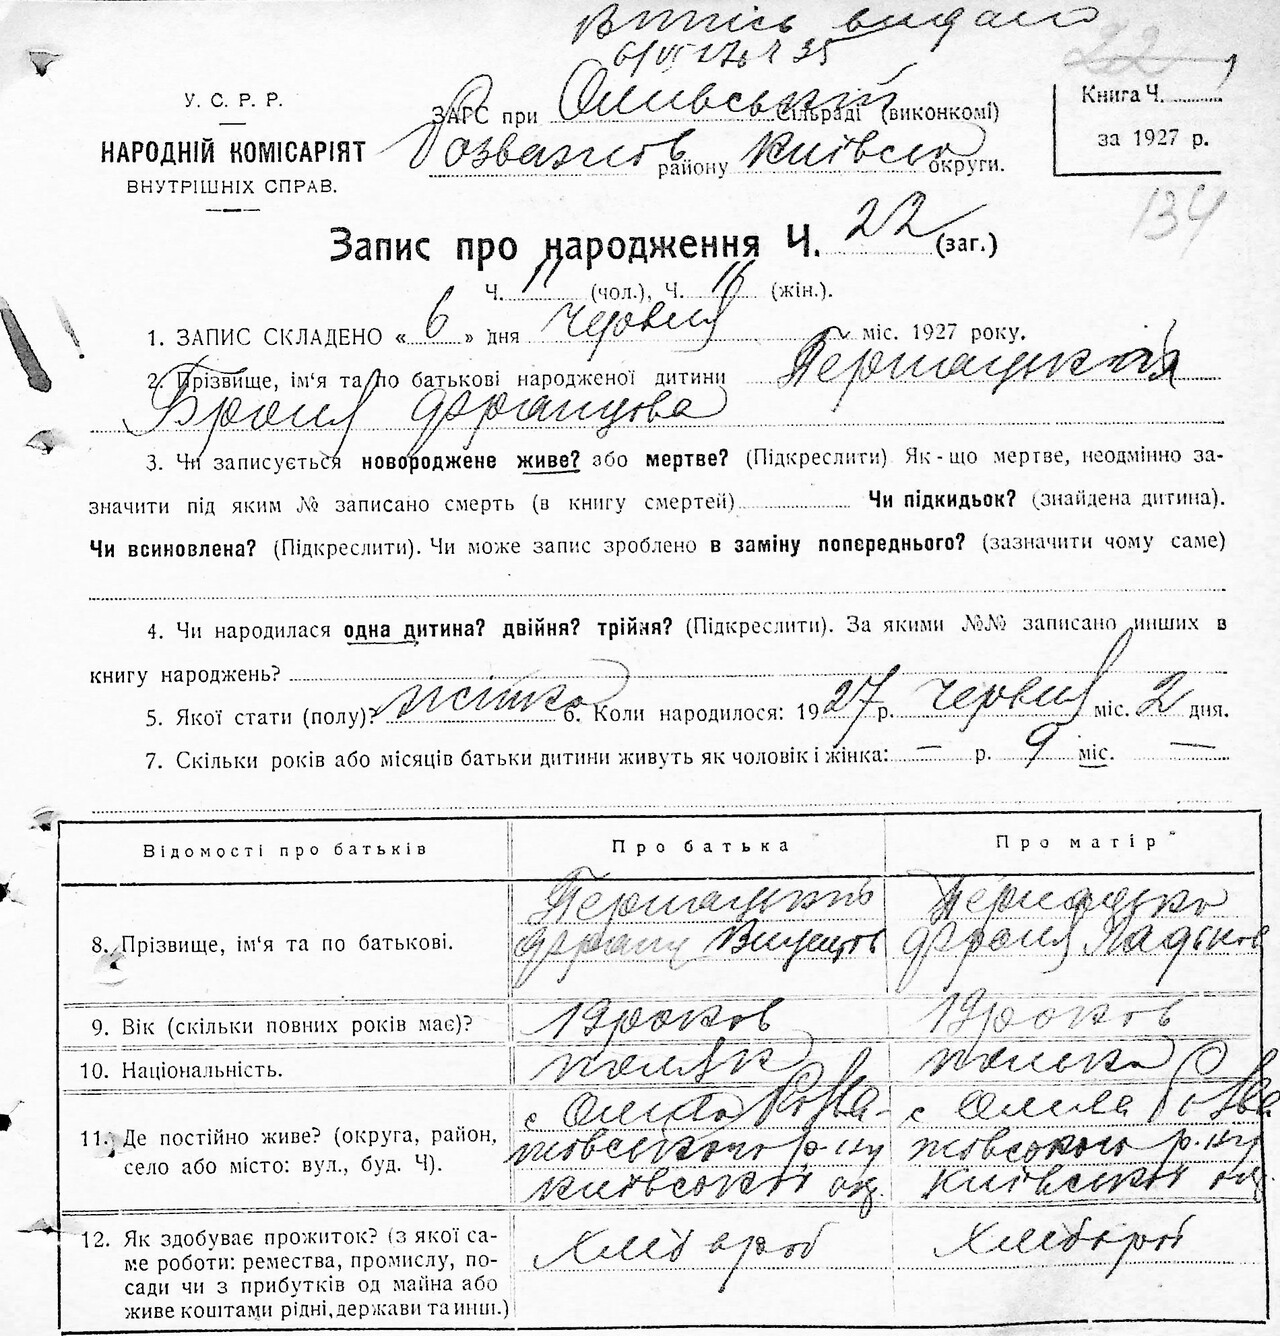 Витпісь видано
6/VI 27
22
У. С. Р. Р.
НАРОДНІЙ КОМІСАРІЯТ
ВНУТРІШНІХ СПРАВ.
ЗАГС при Оливський Сільраді (виконкомі)
Розважов району Київської округи.
Книга Ч.
за 1927 р.
134
Запис про народження Ч. 22 (заг.)
Ч. 11 (чол.), Ч. 11 (жін.).
1. ЗАПИС СКЛАДЕНО « 6 » дня червня міс. 1927 року.
2. Прізвище, ім'я та по батькові народженої дитини
Броня Францова
3. Чи записується новороджене живе? або мертве? (Підкреслити) Як-що мертве, неодмінно за-
значити під яким № записано смерть (в книгу смертей) Чи підкидьок? (знайдена дитина).
Чи всиновлена? (Підкреслити). Чи може запис зроблено в заміну попереднього? (зазначити чому саме)
4. Чи народилася одна дитина? двійня? трійня? (Підкреслити). За якими №№ записано инших в
книгу народжень?
5. Якої стати (полу)? жінка 6. Коли народилося: 1927 р. червня міс. 2 дня.
7. Скільки років або місяців батьки дитини живуть як чоловік і жінка: — р. 9 міс. —
Відомості про батьків
Про батька
Про матір
8. Прізвище, ім'я та по батькові.
Франц Винцетов
Броня
9. Вік (скільки повних років має)?
19 роков
19 роков
10. Національність.
поляк
полька
11. Де постійно живе? (округа, район,
село або місто: вул., буд. Ч).
с Олива Розва-
жовського р-ну
київській окр.
с Олива Розва
жовського р-ну
Київській окр.
12. Як здобуває прожиток? (з якої са-
ме роботи: ремества, промислу, по-
сади чи з прибутків од майна або
живе коштами рідні, держави та инш.)
Хлібороб
Хлібороб